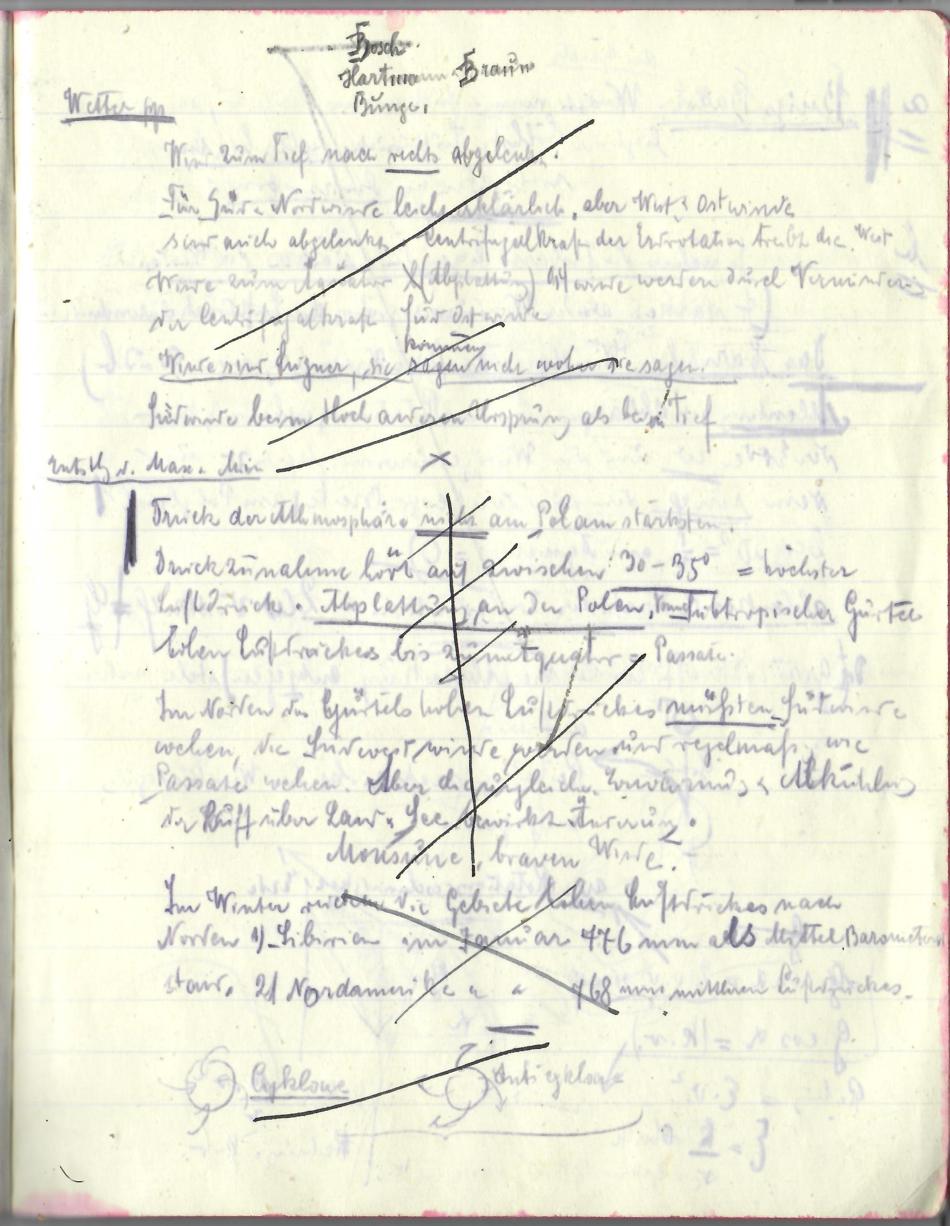 Bosch
Hartmann & Braun
Bunge.
Wetter pp
Wind zum Tief nach rechts abgelenkt.
Für Süd u Nordwinde leicht erklärlich, aber West u Ostwinde
sind auch abgelenkt. Centrifugalkraft der Erdrotation treibt die West
Winde zum Äquator (Abplattung) Ostwinde werden durch Verminder
der Centrifugalkraft
Winde sind Lügner, sie kommen nicht woher sie sagen.
Südwinde beim Hoch anderen Ursprung als beim Tief
Entsthg v. Max u. Min
Druck der Athmosphäre nicht am Pol am stärksten.
Druckzunahme hört auf zwischen 30 - 35° = höchster
Luftdruck. Abplattung an den Polen, subtropischer Gürtel
hohen Luftdruckes bis zum Equator = Passate.
Im Norden des Gürtels hohen Luftdruckes müßten Südwinde
wehen, die Südwestwinde werden und regelmäß. wie
Passate wehen. Aber die ungleich. Erwärmung u Abkühlung
der Luft über Land u See bewirkt Änderung.
Monsune, braven Winde.
Im Winter rücken die Gebiete hohen Luftdruckes nach
Norden 1) Sibirien im Januar 776 mm als Mittel Barometer
stand. 2) Nordamerika " " 768 mm mittleren Luftdruckes.
Cyklone Anticyklone